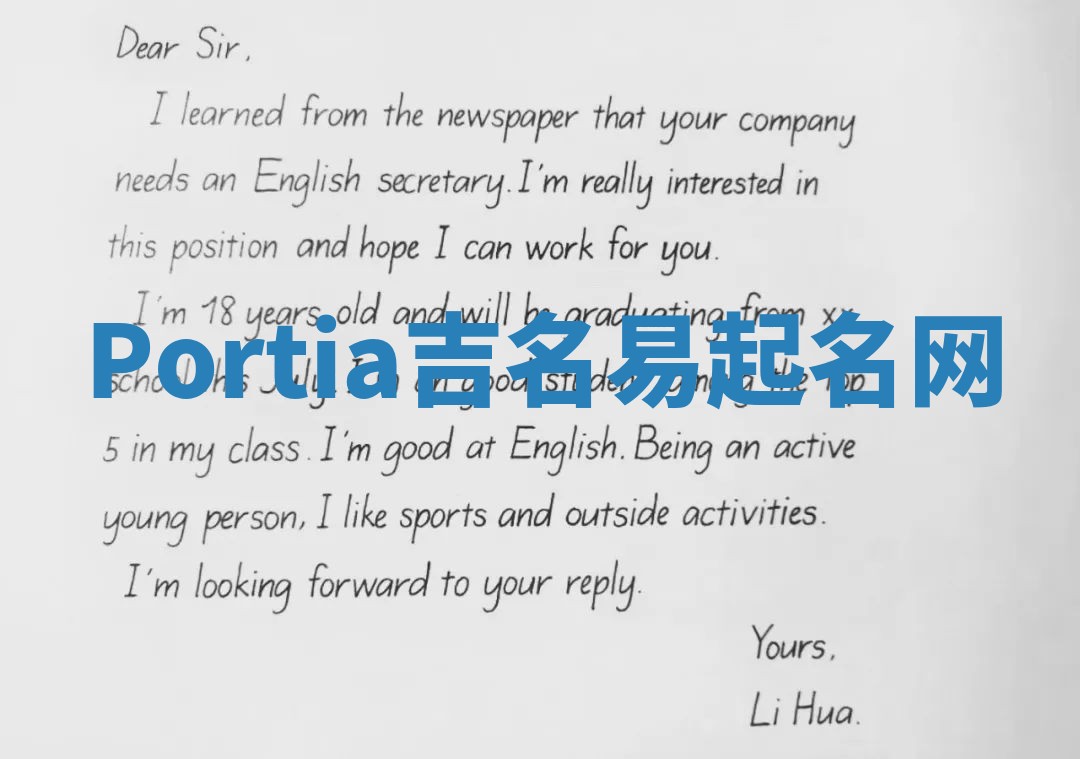 Dear Sir,
I learned from the newspaper that your company
needs an English secretary. I'm really interested in
this position and hope I can work for you.
I'm 18 years old and will be graduating from xx
Portia吉名易起名网
school this July. I'm an good student among the Top
5 in my class. I'm good at English. Being an active
young person, I like sports and outside activities.
I'm looking forward to your reply.
Yours,
Li Hua.